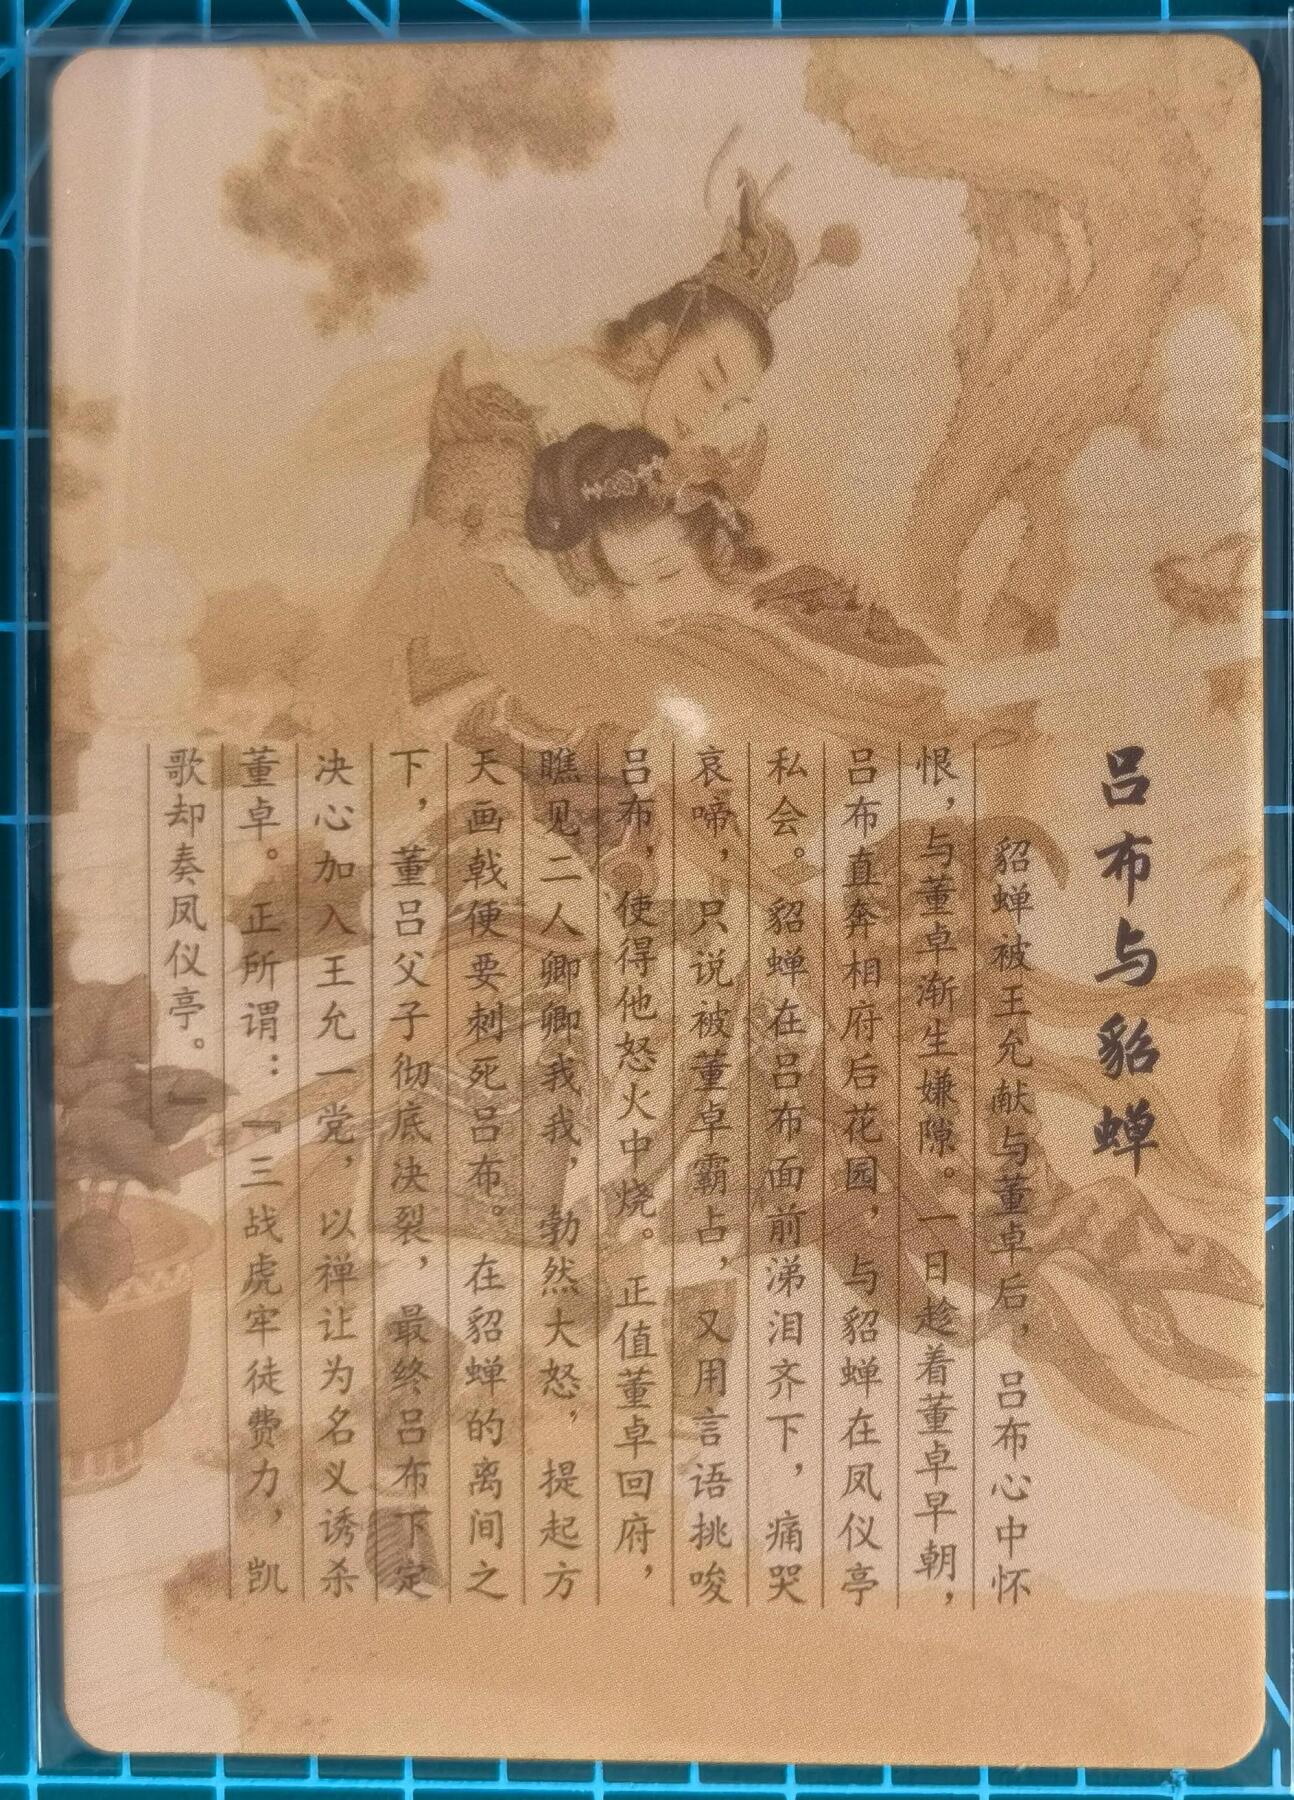 吕布与貂蝉
貂蝉被王允献与董卓后，吕布心中怀
恨，与董卓渐生嫌隙。一日趁着董卓早朝，
吕布直奔相府后花园，与貂蝉在凤仪亭
私会。貂蝉在吕布面前涕泪齐下，痛哭
哀啼，只说被董卓霸占，又用言语挑唆
吕布，使得他怒火中烧。正值董卓回府，
瞧见二人卿卿我我，勃然大怒，提起方
天画戟便要刺死吕布。在貂蝉的离间之
下，董吕父子彻底决裂，最终吕布下定
决心加入王允一党，以禅让为名义诱杀
董卓。正所谓：『三战虎牢徒费力，凯
歌却奏凤仪亭。』